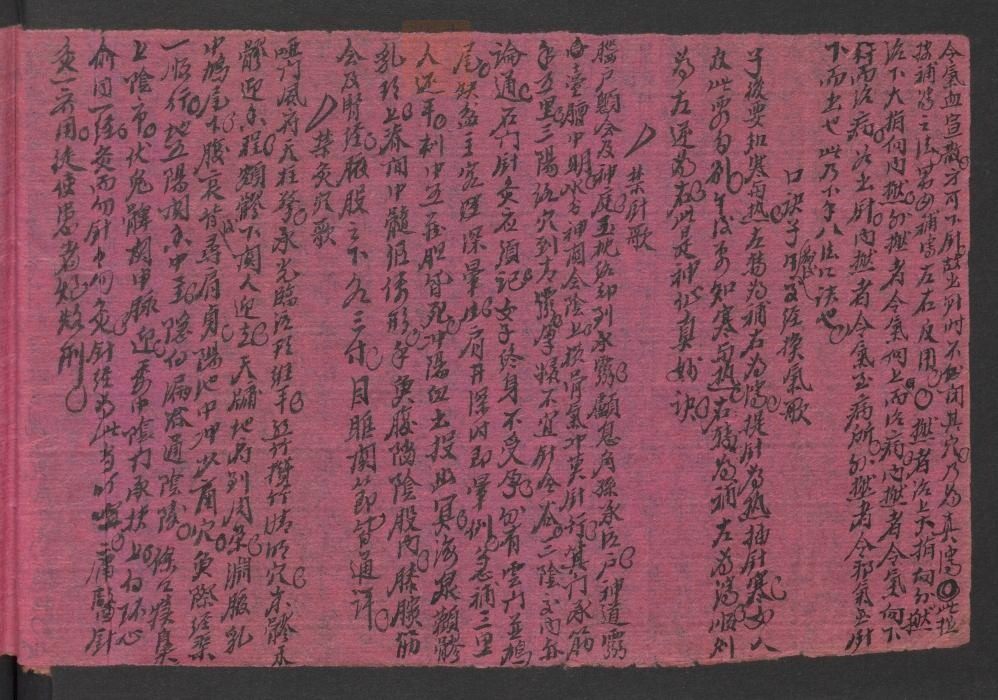 令氣血宣散方可下針起針時不閉其穴乃為真瀉○此捏
按補瀉之法男女補瀉左右反用○撚者治上大指向外撚
治下大指向內撚外撚者令氣向上而治病內撚者令氣向下
而治病○出針內撚者令氣至病所外撚者令邪氣至針
下而出也此乃下手八法口訣也
口訣子午及經換氣歌
子後要知寒與熱左轉為補右為瀉提針為熱插針寒女人
反此要分別午後要知寒與熱右轉為補左為瀉順則
為左逆為右此是神仙真妙訣
禁針歌
腦戶顖會及神庭玉枕絡却到承靈顱息角孫承泣戶神道靈
臺膻中明水分神闕會陰上橫骨氣冲莫針行箕門承筋
手五里三陽絡穴到青靈孕婦不宜針合谷三陰交內亦
論通石門針灸應須記女子終身不受孕外有雲門並鳩
尾缺盆主客深暈生肩井深時即暈倒急補三里
人還平刺中五臟胆皆死冲陽血出投幽冥海泉顴髎
乳頭上脊間中髓傴僂形手魚腹陷陰股內膝臏筋
會及腎經腋股之下各三寸目眶關節皆通評
禁灸穴歌
啞門風府天柱擎承光臨泣頭維平絲竹攢竹睛明穴素髎禾
髎迎香程顴髎下關人迎去天牖天府到周榮淵腋乳
中鳩尾下腹哀臂後尋肩貞陽池中冲少商穴魚際經渠
一順行地五陽關脊中主隱白漏谷通陰陵條口犢鼻
上陰市伏兔髀關申脉迎委中殷門承扶上白環心
俞同一經灸而勿針針勿灸針經為此嘗叮嚀庸醫針
灸一齊用徒使患者炮烙刑